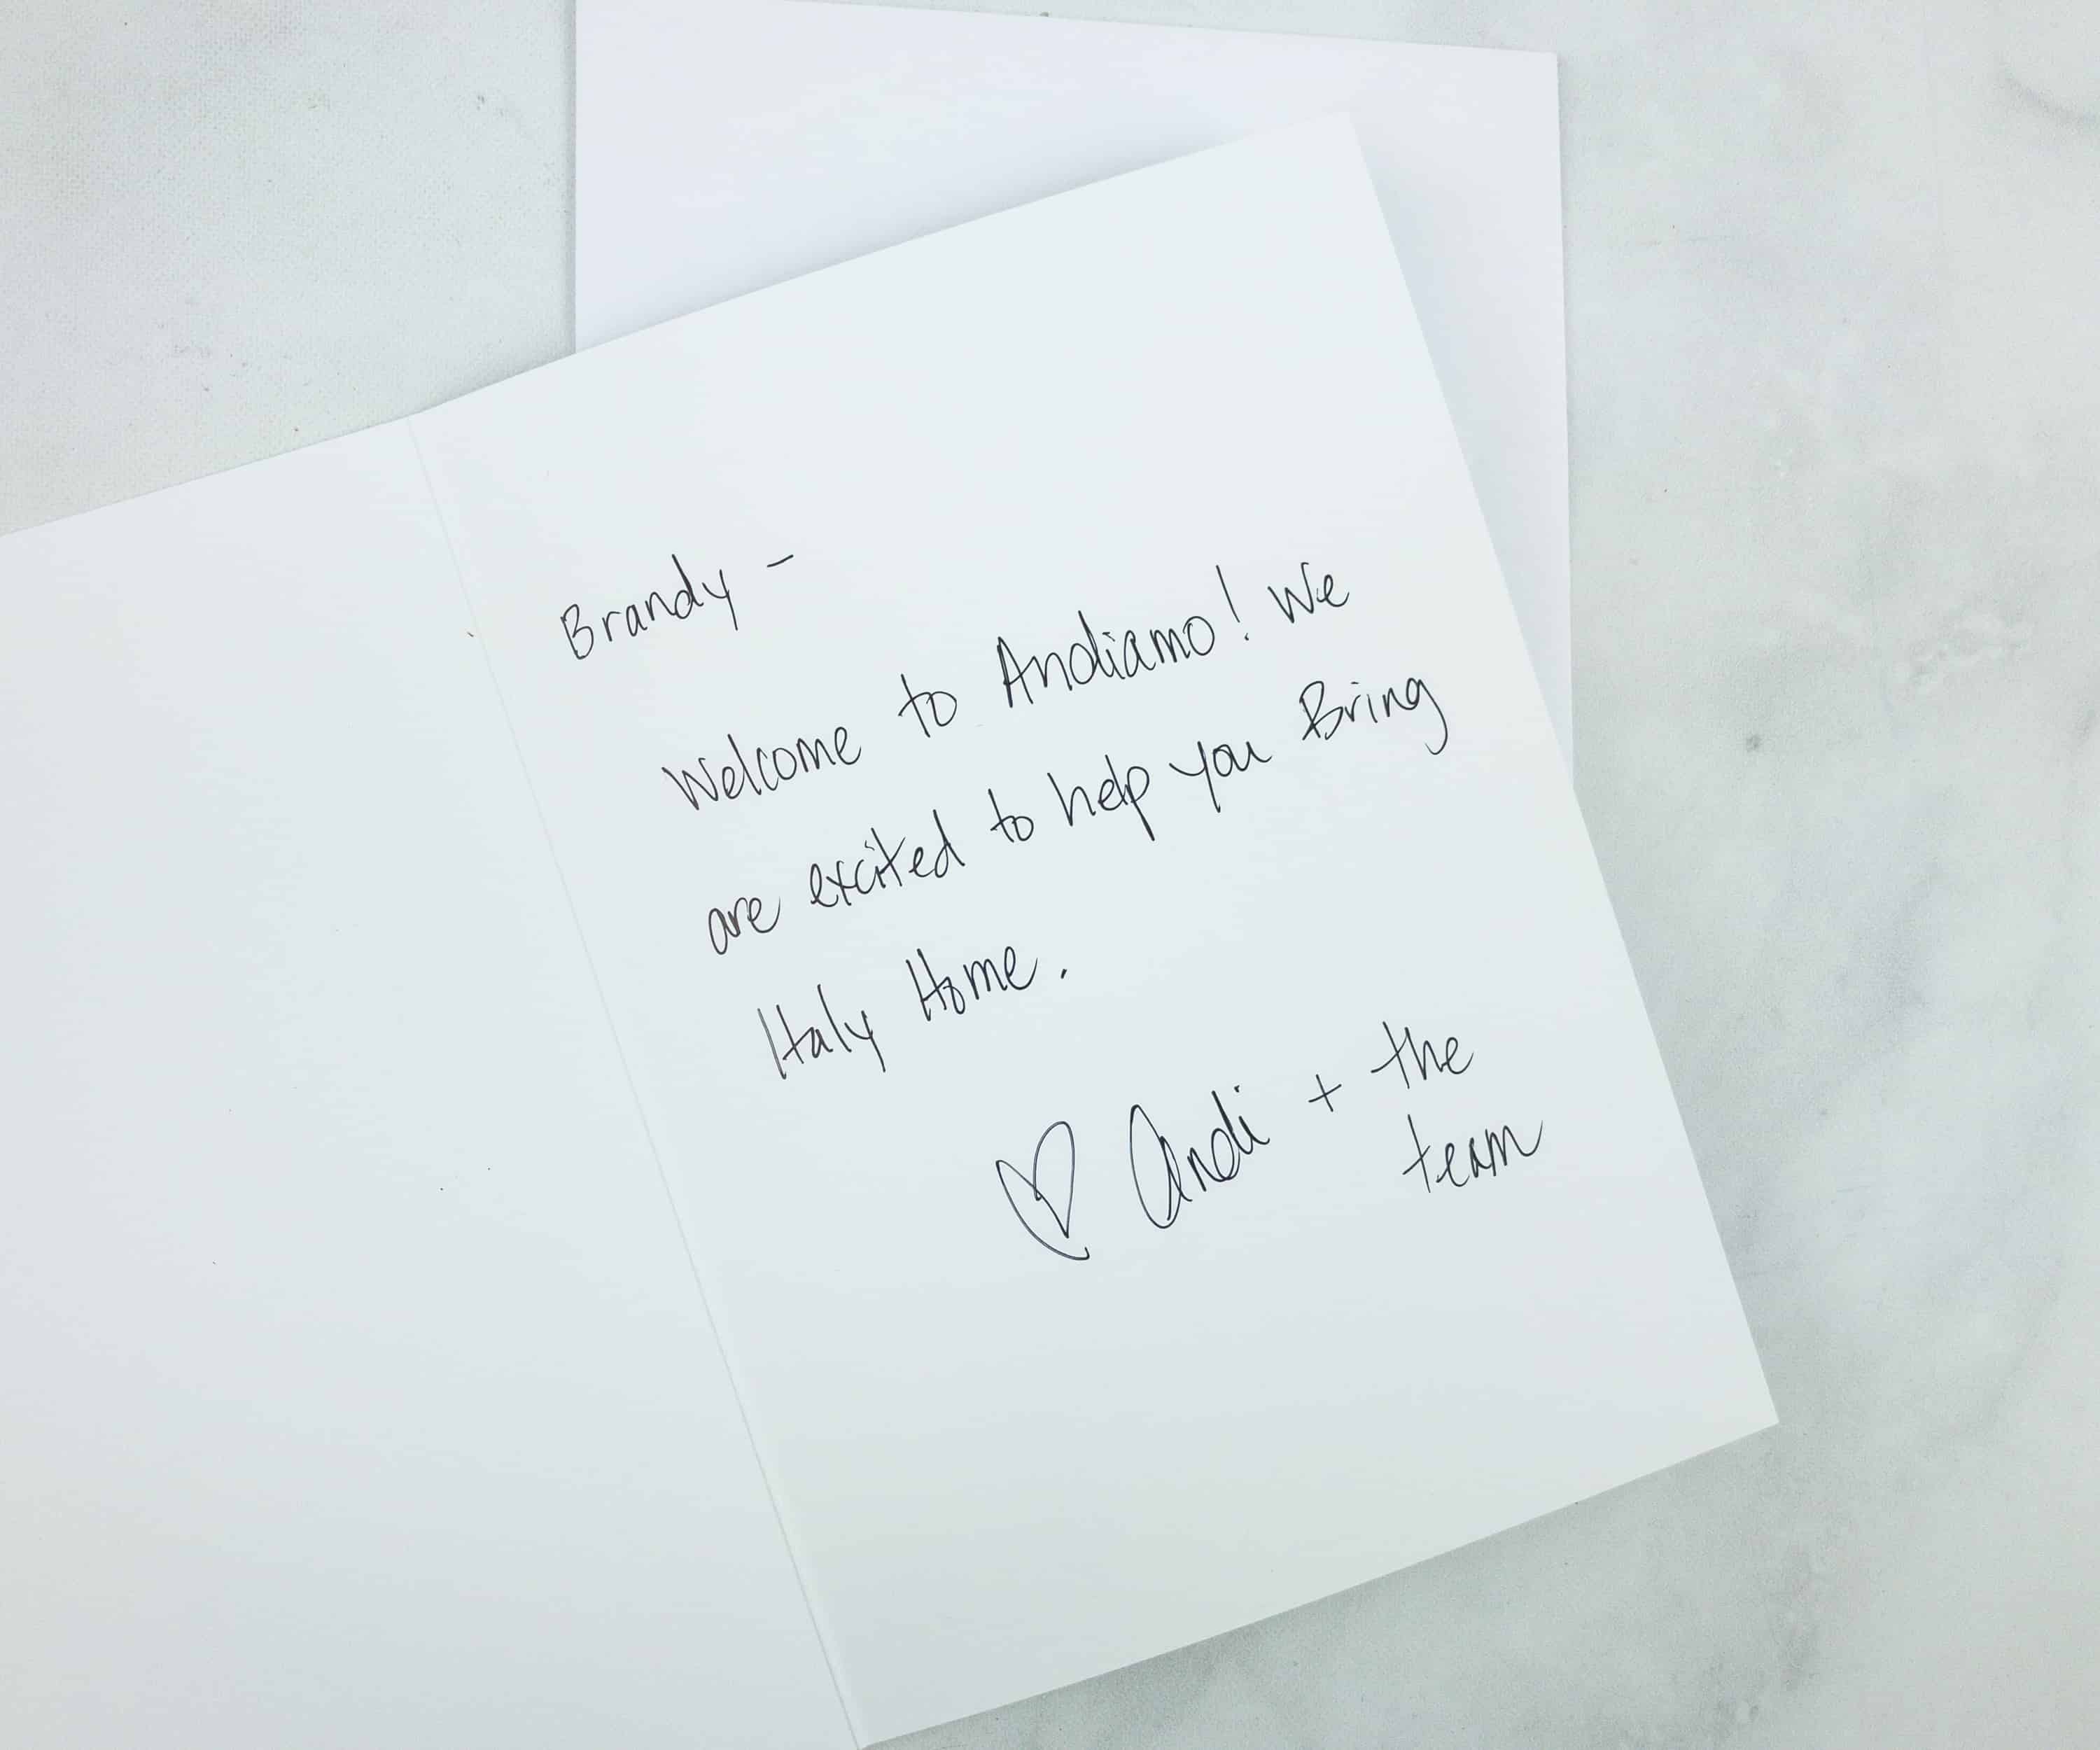 Brandy -
Welcome to Andiamo! We
are excited to help you Bring
Italy Home.
♡ Andi + the
team